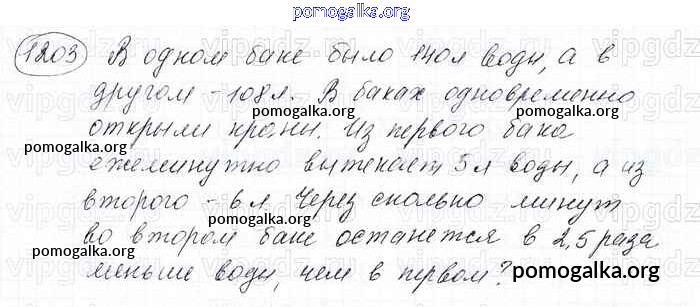 pomogalka.org
1203 В одном баке было 140л воды, а в
другом - 108л. В баках одновременно
pomogalka.org
открыли краны. Из первого бака
pomogalka.org
ежеминутно вытекает 5л воды, а из
второго - 6л. Через сколько минут
pomogalka.org
во втором баке останется в 2,5 раза
pomogalka.org
меньше воды, чем в первом?
pomogalka.org